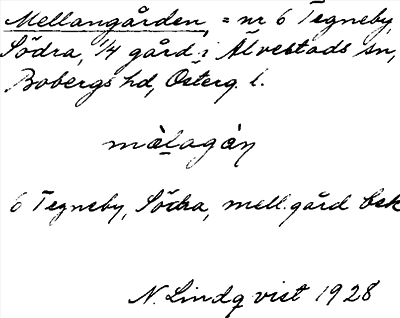 Mellangården, = nr 6 Tegneby,
Södra, 1/4 gård i Älvestads sn,
Bobergs hd, Österg. l.
mȧ̀lagȧ̀ɳ
6 Tegneby, Södra, mell.gård bsk
N. Lindqvist 1928